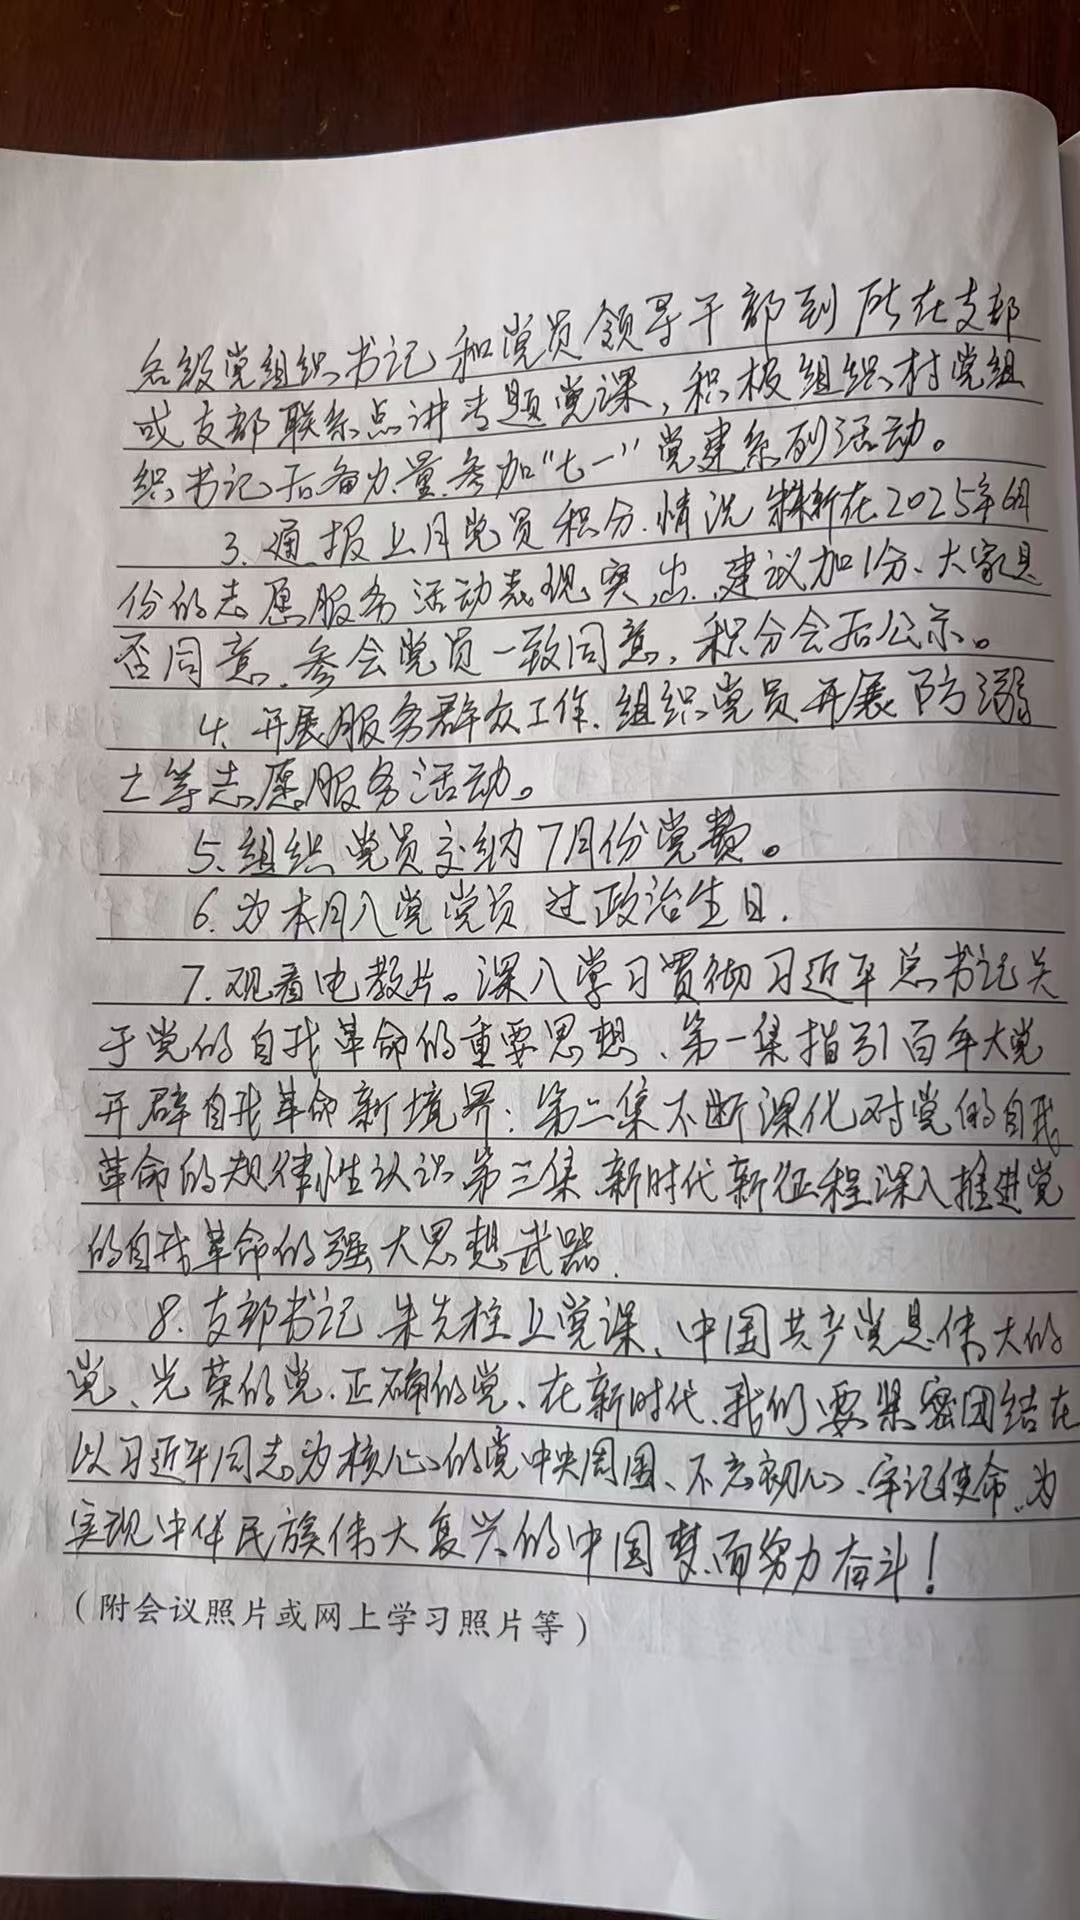 各级党组织书记和党员领导干部到所在支部
或支部联系点讲专题党课，积极组织村党组
织书记后备力量参加“七一”党建系列活动。
3、通报上月党员积分情况 新在2025年6月
份的志愿服务活动表现突出，建议加1分、大家是
否同意、参会党员一致同意，积分会后公示。
4、开展服务群众工作、组织党员开展防溺
亡等志愿服务活动。
5、组织党员交纳7月份党费。
6、为本月入党党员过政治生日.
7、观看电教片。深入学习贯彻习近平总书记关
于党的自我革命的重要思想、第一集指引百年大党
开辟自我革命新境界；第二集不断深化对党的自我
革命的规律性认识 第三集 新时代新征程深入推进党
的自我革命的强大思想武器.
8、支部书记 朱先柱上党课、中国共产党是伟大的
党、光荣的党.正确的党、在新时代、我们要紧密团结在
以习近平同志为核心的党中央周围、不忘初心、牢记使命、为
实现中华民族伟大复兴的中国梦而努力奋斗！
（附会议照片或网上学习照片等）